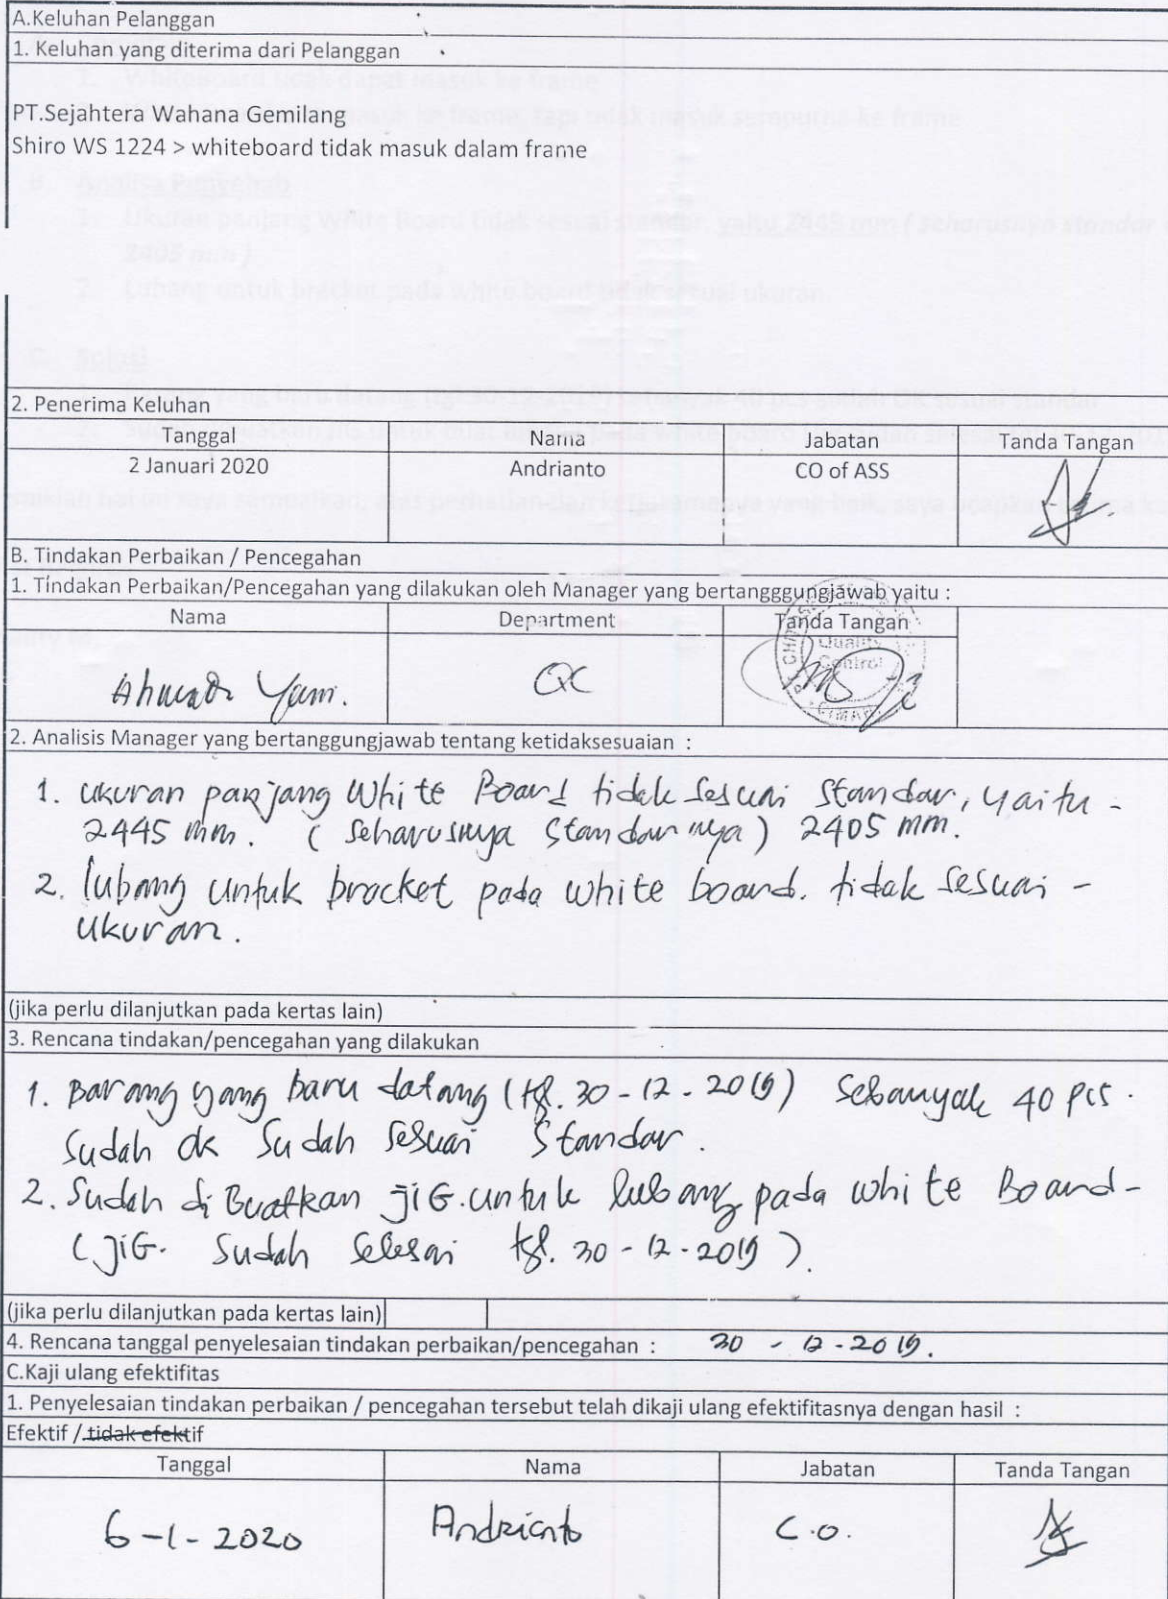 A.Keluhan Pelanggan
1. Keluhan yang diterima dari Pelanggan
PT.Sejahtera Wahana Gemilang
Shiro WS 1224 > whiteboard tidak masuk dalam frame
2. Penerima Keluhan
Tanggal Nama Jabatan Tanda Tangan
2 Januari 2020 Andrianto CO of ASS
B. Tindakan Perbaikan / Pencegahan
1. Tindakan Perbaikan/Pencegahan yang dilakukan oleh Manager yang bertangggungjawab yaitu :
Nama Department Tanda Tangan
Quality
Control
Ahmad Yani. QC
2. Analisis Manager yang bertanggungjawab tentang ketidaksesuaian :
1. ukuran panjang White Board tidak sesuai standar, yaitu -
2445 mm. ( seharusnya standarnya ) 2405 mm.
2. lubang untuk bracket pada white board. tidak sesuai -
ukuran.
(jika perlu dilanjutkan pada kertas lain)
3. Rencana tindakan/pencegahan yang dilakukan
1. Barang yang baru datang (tgl. 30 - 12 - 2019) sebanyak 40 pcs.
sudah ok sudah sesuai standar.
2. Sudah di Buatkan jiG. untuk lubang pada white Board -
( jiG. sudah selesai tgl. 30 - 12 - 2019 ).
(jika perlu dilanjutkan pada kertas lain)
4. Rencana tanggal penyelesaian tindakan perbaikan/pencegahan : 30 - 12 - 2019.
C.Kaji ulang efektifitas
1. Penyelesaian tindakan perbaikan / pencegahan tersebut telah dikaji ulang efektifitasnya dengan hasil :
Efektif / tidak efektif
Tanggal Nama Jabatan Tanda Tangan
6-1-2020 Andrianto C.O.